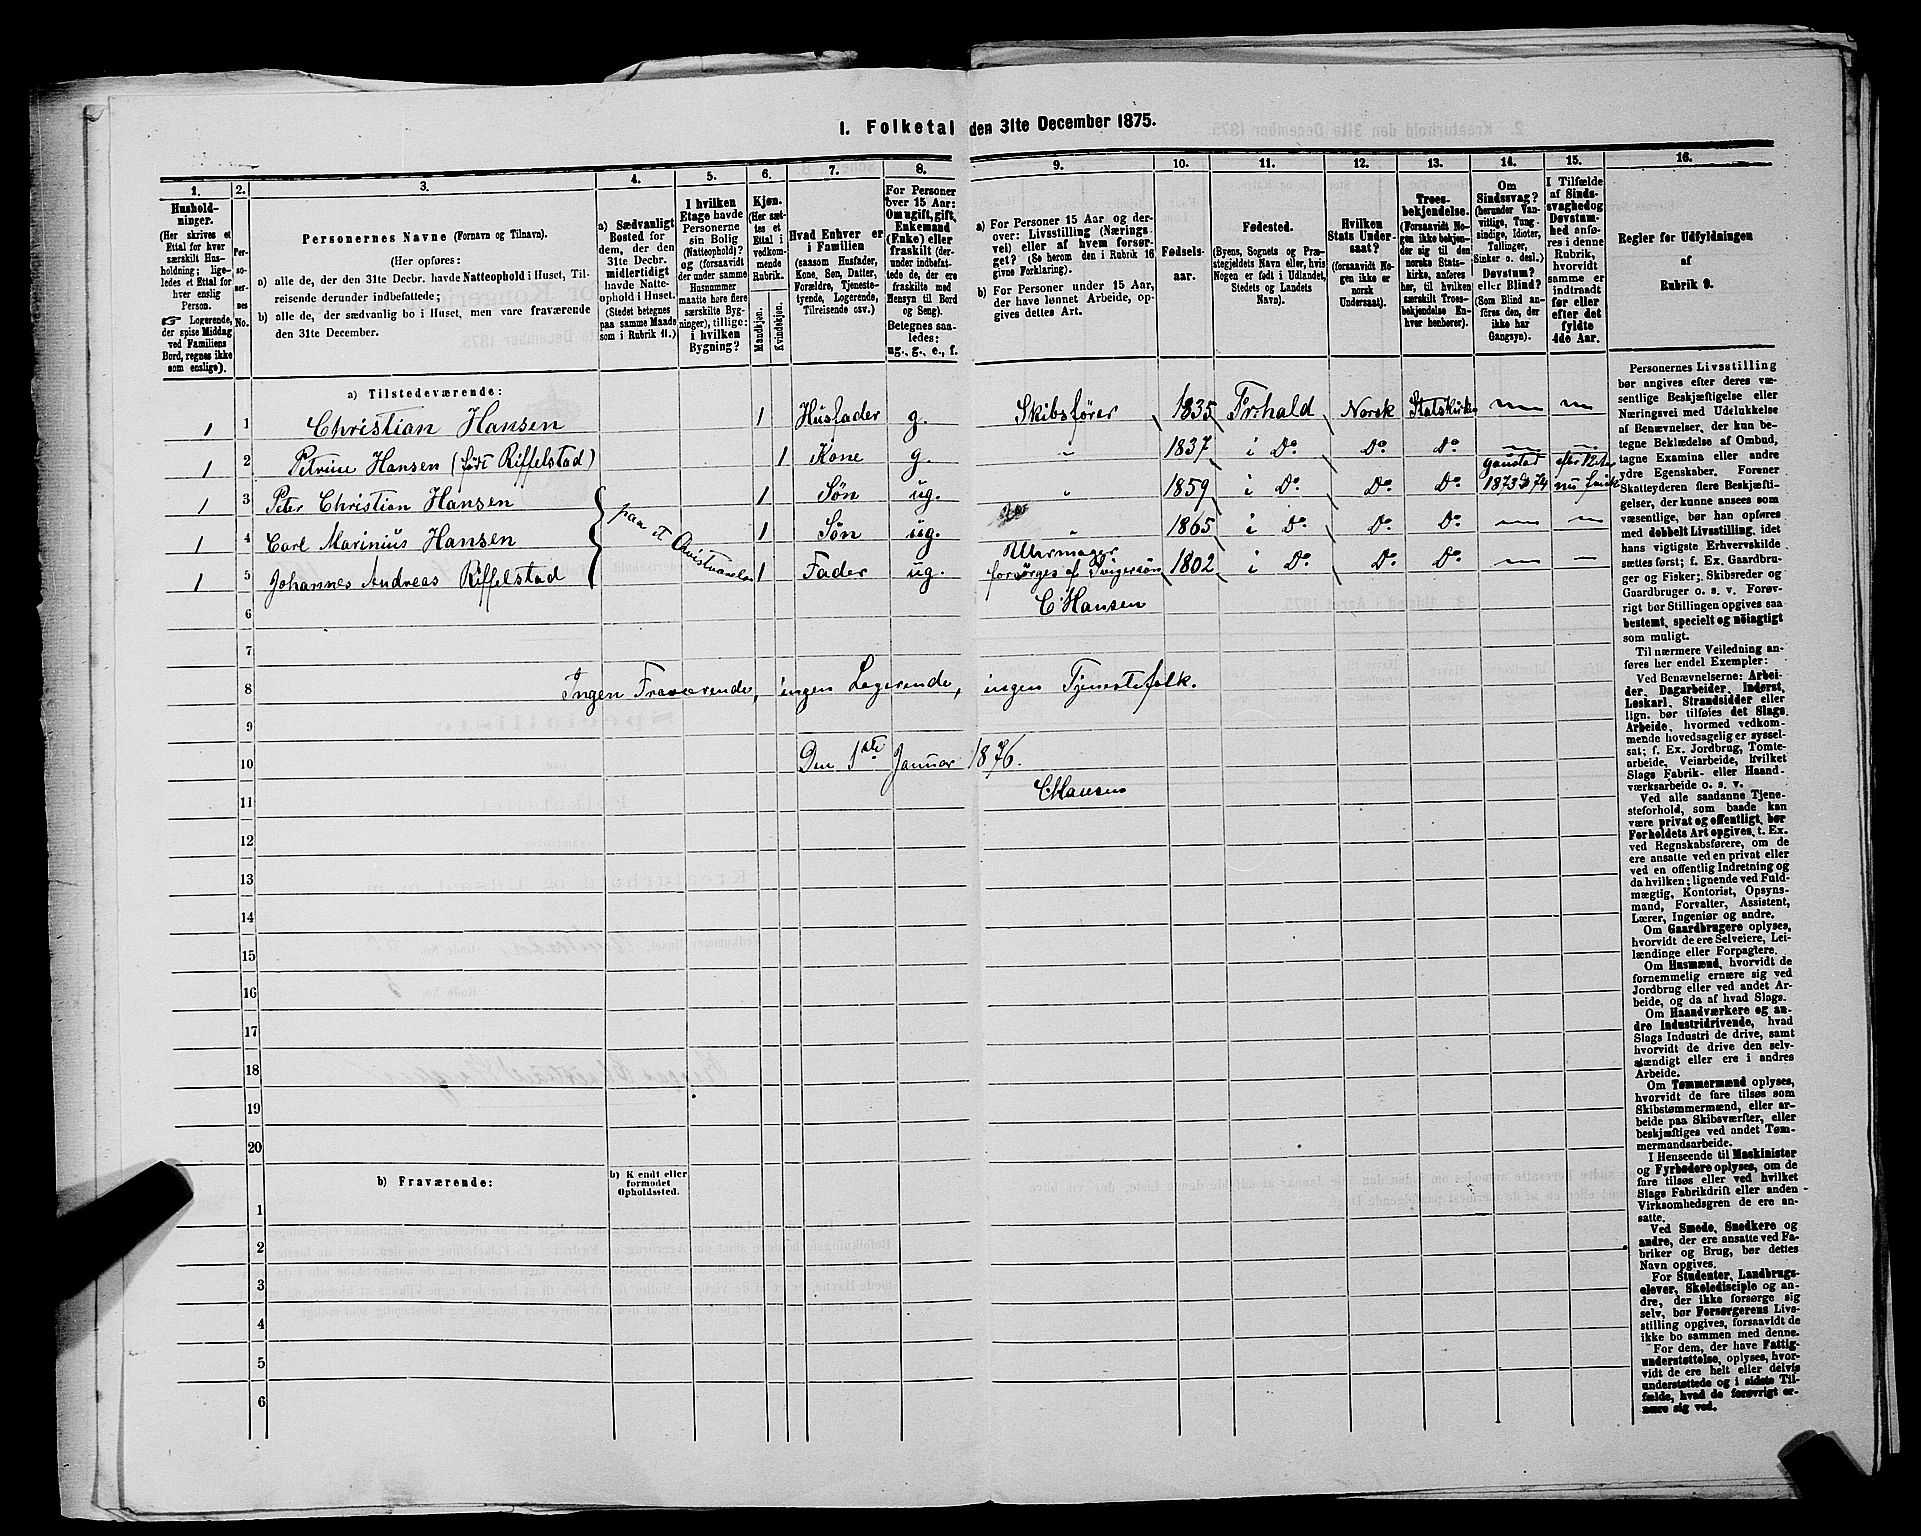 1. Folketal den 31te December 1875.
1. 2. 3. 4. 5. 6. 7. 8. 9. 10. 11. 12. 13. 14. 15. 16.
Husholdninger.
(Her skrives et
Ettal for hver
særskilt Husholdning;
ligeledes et Ettal for
hver enslig
Person.
☞ Logerende,
der spise Middag
ved Familiens
Bord, regnes ikke
som enslige).
Personernes No.
Personernes Navne (Fornavn og Tilnavn).
(Her opføres:
a) alle de, der den 31te Decbr. havde Natteophold i Huset, Tilreisende derunder indbefattede;
b) alle de, der sædvanlig bo i Huset, men vare fraværende
den 31te December.
a) Sædvanligt
Bosted for
dem, der den
31te Decbr.
midlertidigt
havde Natteophold i Huset.
(Stedet betegnes
paa samme Maade
som i Rubrik 11.)
I hvilken
Etage havde
Personerne
sin Bolig
(Natteophold)?
og (forsaavidt
der under samme
Husnummer
maatte høre flere
særskilte Bygninger), tillige:
i hvilken
Bygning?
Kjøn.
(Her sættes et
Ettal i
vedkommende
Rubrik.
Mandkjøn.
Kvindekjøn.
Hvad Enhver er
i Familien
(saasom Husfader,
Kone, Søn, Datter,
Forældre, Tjenestetyende, Logerende,
Tilreisende osv.)
For Personer
over 15 Aar:
Om ugift, gift,
Enkemand
(Enke) eller
fraskilt (derunder indbefattede de, der ere
fraskilte med
Hensyn til Bord
og Seng).
Betegnes saaledes:
ug., g., e., f.
a) For Personer 15 Aar og derover: Livsstilling (Næringsvei) eller af hvem forsørget? (Se herom den i Rubrik 16
givne Forklaring).
b) For Personer under 15 Aar,
der have lønnet Arbeide, opgives dettes Art.
Fødselsaar.
Fødested.
(Byens, Sognets og Præstegjeldets Navn eller, hvis
Nogen er født i Udlandet,
Stedets og Landets
Navn).
Hvilken
Stats Undersaat?
(forsaavidt Nogen ikke er
norsk
Undersaat).
Troesbekjendelse.
(Forsaavidt Nogen ikke bekjender sig til den
norske Statskirke, anføres
her, til hvilken
særskilt Troesbekjendelse Enhver henhører).
Om
Sindssvag?
(herunder Vanvittige, Tungsindige, Idioter,
Tullinger,
Sinker o. desl.)
Døvstum?
eller Blind?
(Som Blind anføres den, der
ikke har
Gangsyn).
I Tilfælde
af Sindssvaghed og
Døvstumhed anføres i denne
Rubrik,
hvorvidt
samme er
indtraadt
før eller
efter det
fyldte
4de Aar.
Regler for Udfyldningen
af
Rubrik 9.
a) Tilstedeværende:
1 1 Christian Hansen 1 Husfader g. Skibsfører 1835 Fr:hald Norsk Statskirken
1 2 Petrine Hansen (født Riffelstad) 1 Kone g. " 1837 i Do Do Do
1 3 Peter Christian Hansen 1 Søn ug. " 1859 i Do Do Do Gaustad 1873 74 efter 12 nu frisk
1 4 Carl Marinius Hansen 1 Søn ug. " 1865 i Do Do Do
paa St Christianslo
1 5 Johannes Andreas Riffelstad 1 Fader ug. Uhrmager forsørges af Svigersøn 1802 i Do Do Do
6 C Hansen
7
8 Ingen Fraværende, ingen Logerende, ingen Tjenestefolk.
9
10 Den 1ste Januar 1876.
11 CHansen
12
13
14
15
16
17
18
19
20
b) Fraværende:
b) Kjendt eller
formodet
Opholdssted.
1
2
3
4
5
6
Personernes Livsstilling
bør angives efter deres væsentlige Beskjæftigelse eller
Næringsvei med Udelukkelse
af Benævnelser, der kun betegne Beklædelse af Ombud,
tagne Examina eller andre
ydre Egenskaber. Forener
Skatteyderen flere Beskjæftigelser, der kunne ansees som
væsentlige, bør han opføres
med dobbelt Livsstilling, idet
hans vigtigste Erhvervskilde
sættes først; f. Ex. Gaardbruger og Fisker; Skibsreder og
Gaardbruger o. s. v. Forøvrigt bør Stillingen opgives saa
bestemt, specielt og nøiagtigt
som muligt.
Til nærmere Veiledning anføres her endel Exempler:
Ved Benævnelserne: Arbeider, Dagarbeider, Inderst,
Løskarl, Strandsidder eller
lign. bør tilføies det Slags
Arbeide, hvormed vedkommende hovedsagelig er sysselsat; f. Ex. Jordbrug, Tomtearbeide, Veiarbeide, hvilket
Slags Fabrik- eller Haandværksarbeide o. s. v.
Ved alle saadanne Tjenesteforhold, som baade kan
være privat og offentligt, bør
Forholdets Art opgives, t. Ex.
ved Regnskabsførere, om de
ere ansatte ved en privat eller
ved en offentlig Indretning og
da hvilken; lignende ved Fuldmægtig, Kontorist, Opsynsmand, Forvalter, Assistent,
Lærer, Ingeniør og andre.
Om Gaardbrugere oplyses,
hvorvidt de ere Selveiere, Leilændinge eller Forpagtere.
Om Husmænd, hvorvidt de
fornemmelig ernære sig ved
Jordbrug eller ved andet Arbeide, og da af hvad Slags.
Om Haandværkere og andre Industridrivende, hvad
Slags Industri de drive, samt
hvorvidt de drive den selvstændigt eller ere i andres
Arbeide.
Om Tømmermænd oplyses,
hvorvidt de fare tilsøs som
Skibstømmermænd, eller arbeide paa Skibsværfter, eller
beskjæftiges ved andet Tømmermandsarbeide.
I Henseende til Maskinister
og Fyrbødere oplyses, om de
fare tilsøs eller ved hvilket
Slags Fabrikdrift eller anden
Virksomhedsgren de ere ansatte.
Ved Smede, Snedkere og
andre, der ere ansatte ved Fabriker og Brug, bør dettes
Navn opgives.
For Studenter, Landbrugselever, Skoledisciple og andre, der ikke forsørge sig
selv, bør Forsørgerens Livsstilling opgives, forsaavidt de
ikke bo sammen med denne.
For dem, der have Fattigunderstøttelse, oplyses, hvorvidt de ere helt eller delvis
understøttede og i sidste Tilfælde, hvad de forøvrigt ernære sig ved.